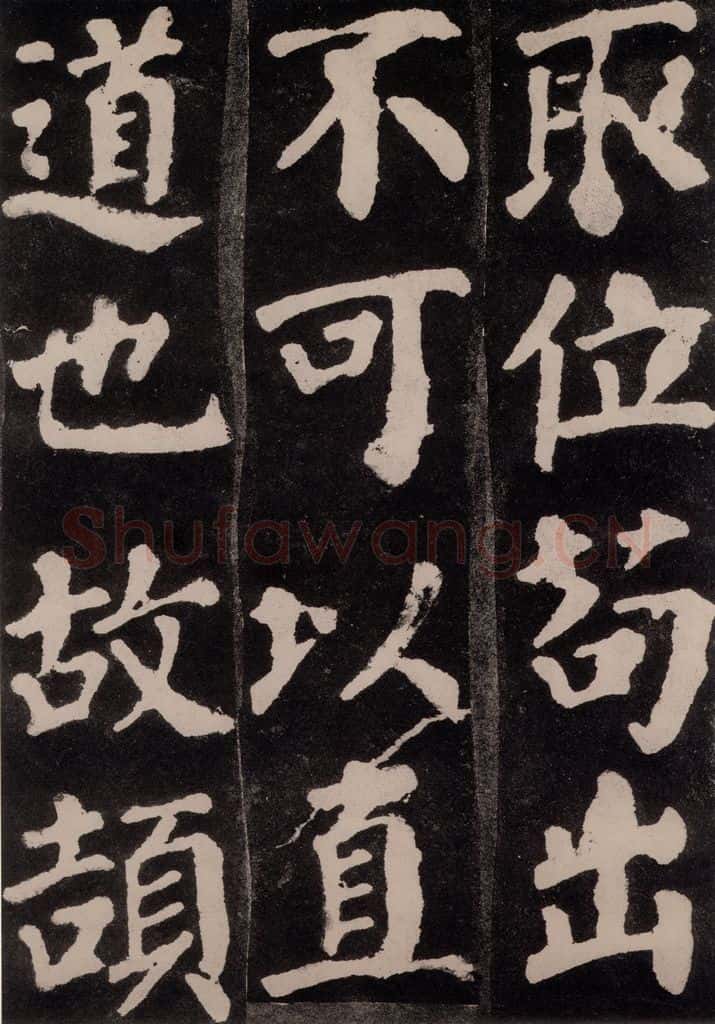 取位苟出
不可以直
道也故頡
Shufawang.CN